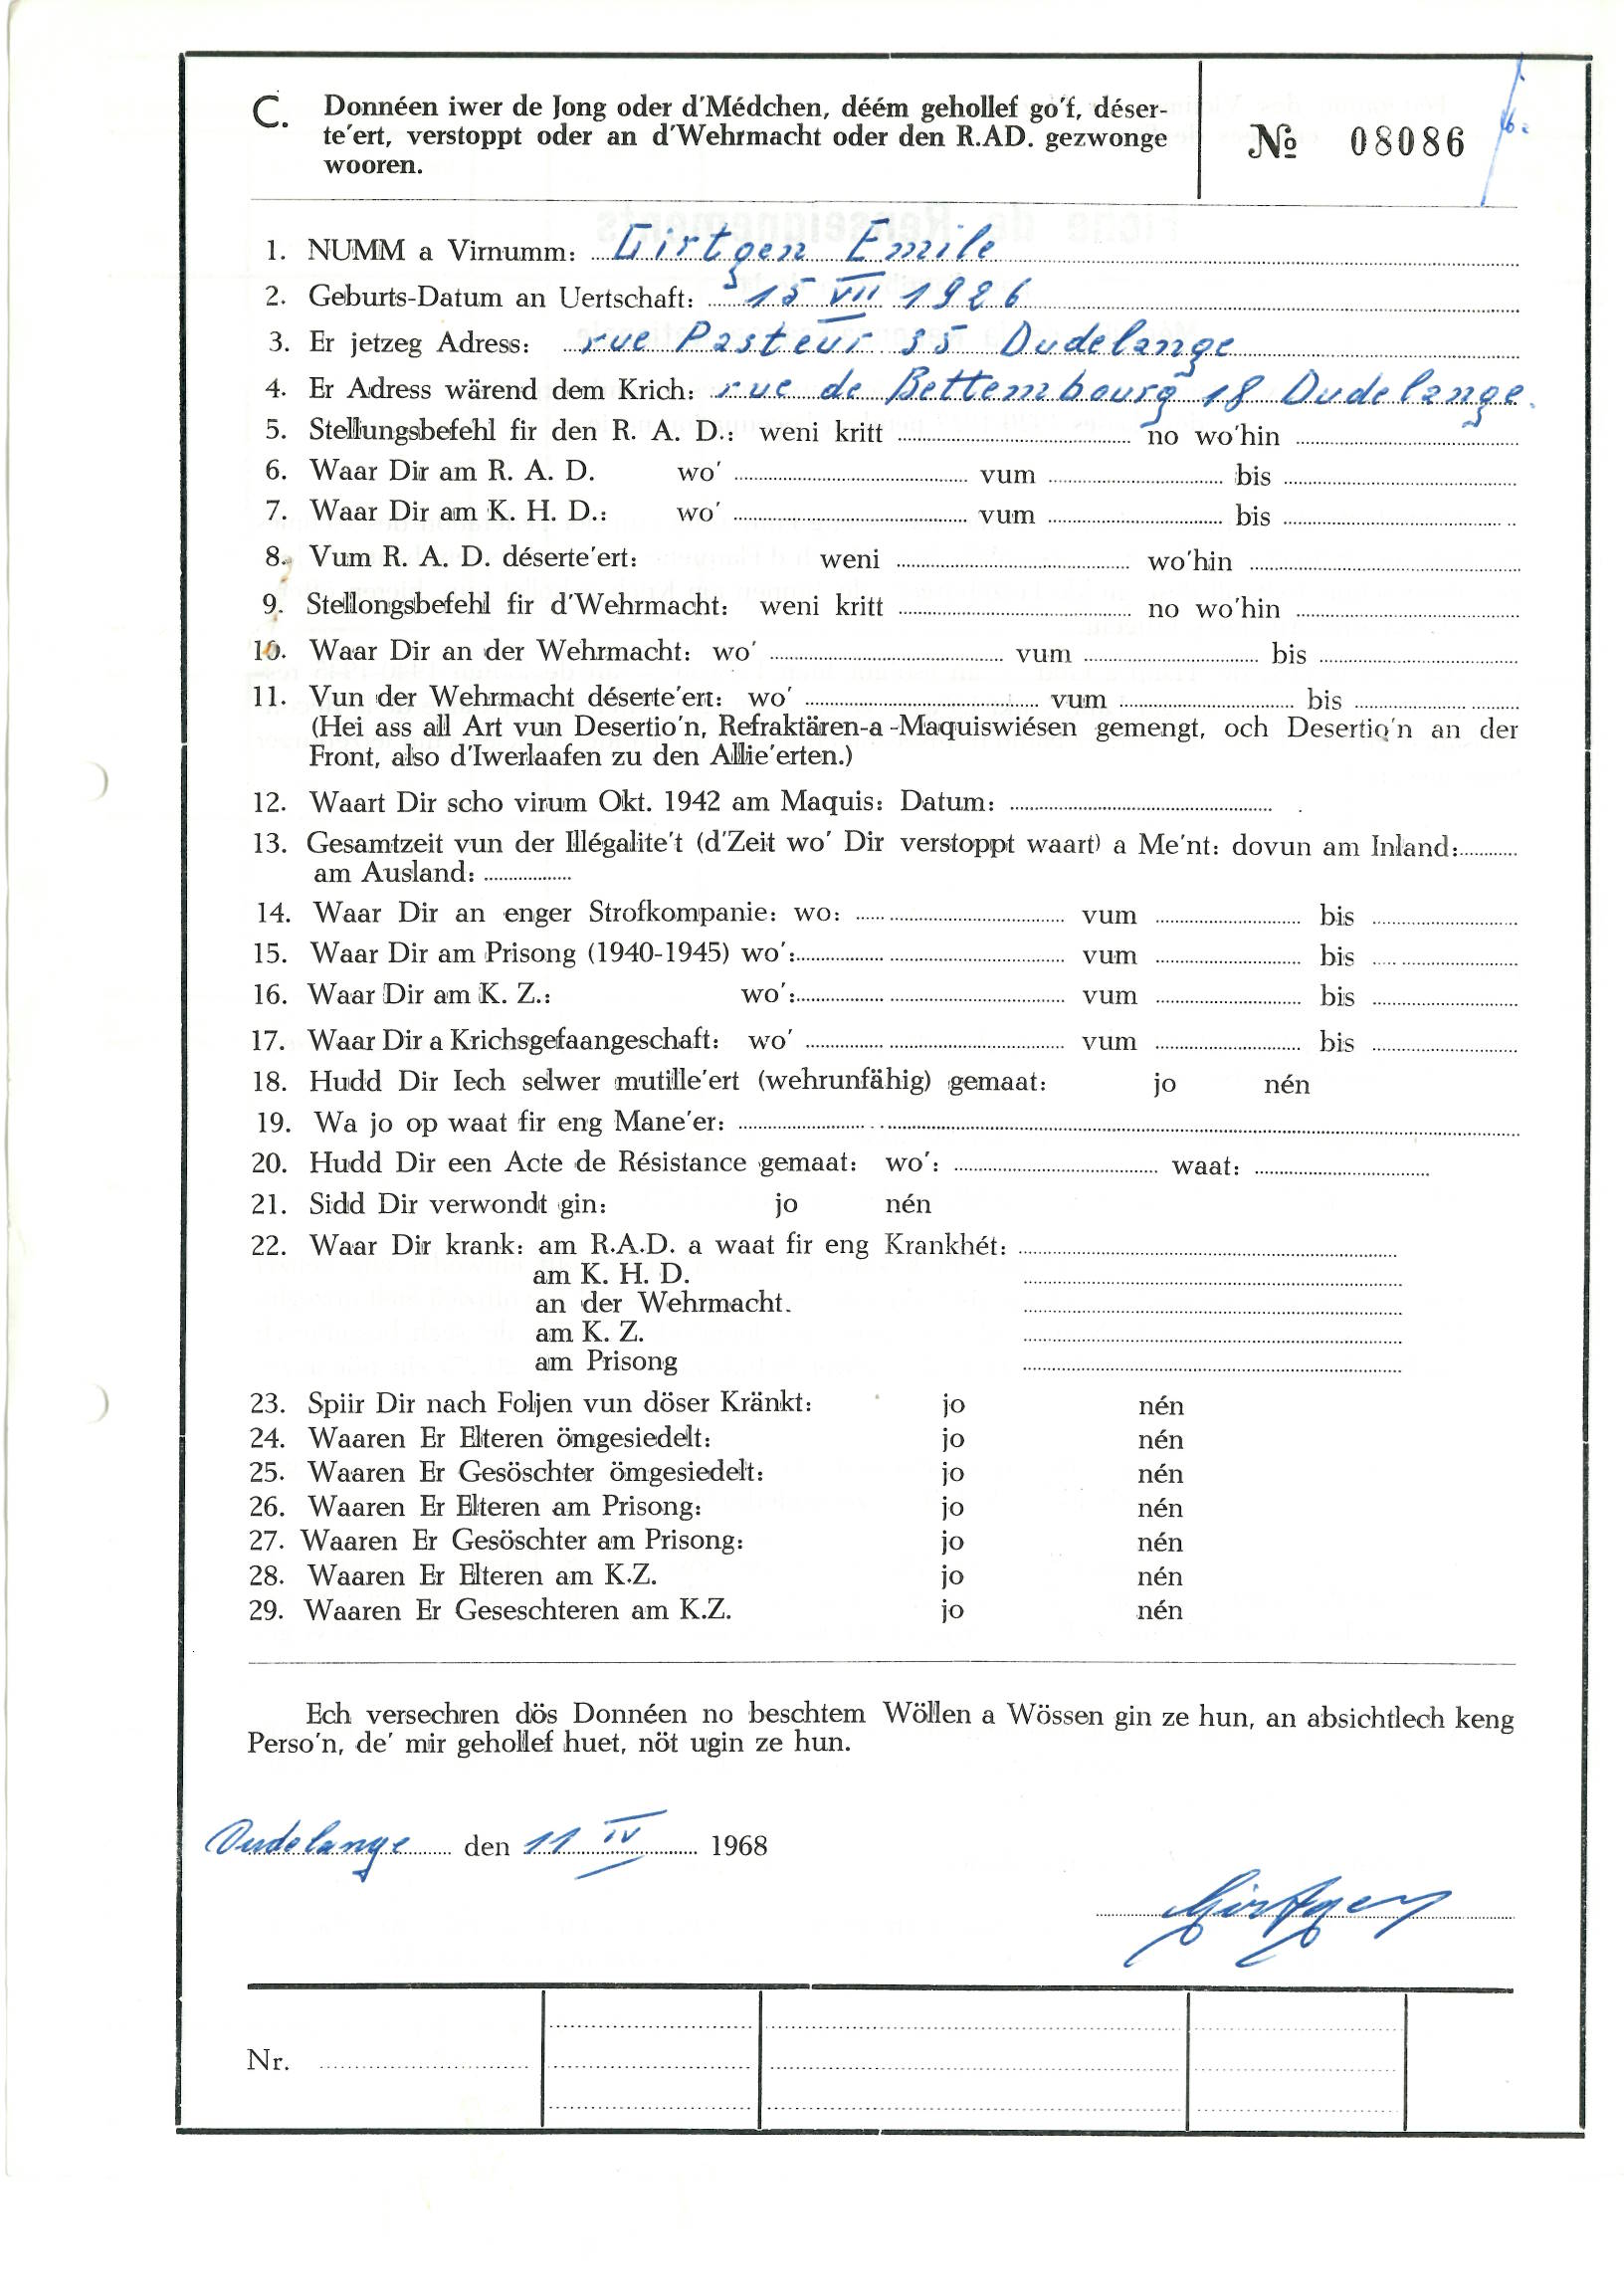 C. Donnéen iwer de Jong oder d'Médchen, déém gehollef go'f, déser-
te'ert, verstoppt oder an d'Wehrmacht oder den R.AD. gezwonge
wooren.
№ 08086
1. NUMM a Virnumm: Girtgen Emile
2. Geburts-Datum an Uertschaft: 15 VII 1926
3. Er jetzeg Adress: rue Pasteur 35 Dudelange
4. Er Adress wärend dem Krich: rue de Bettembourg 18 Dudelange.
5. Stellungsbefehl fir den R. A. D.: weni kritt no wo'hin
6. Waar Dir am R. A. D. wo' vum bis
7. Waar Dir am K. H. D.: wo' vum bis
8. Vum R. A. D. déserte'ert: weni wo'hin
9. Stellongsbefehl fir d'Wehrmacht: weni kritt no wo'hin
10. Waar Dir an der Wehrmacht: wo' vum bis
11. Vun der Wehrmacht déserte'ert: wo' vum bis
(Hei ass all Art vun Desertio'n, Refraktären-a -Maquiswiésen gemengt, och Desertio'n an der
Front, also d'Iwerlaafen zu den Allie'erten.)
12. Waart Dir scho virum Okt. 1942 am Maquis: Datum:
13. Gesamtzeit vun der Illégalite't (d'Zeit wo' Dir verstoppt waart) a Me'nt: dovun am Inland:
am Ausland:
14. Waar Dir an enger Strofkompanie: wo: vum bis
15. Waar Dir am Prisong (1940-1945) wo': vum bis
16. Waar Dir am K. Z.: wo': vum bis
17. Waar Dir a Krichsgefaangeschaft: wo' vum bis
18. Hudd Dir Iech selwer mutille'ert (wehrunfähig) gemaat: jo nén
19. Wa jo op waat fir eng Mane'er:
20. Hudd Dir een Acte de Résistance gemaat: wo': waat:
21. Sidd Dir verwondt gin: jo nén
22. Waar Dir krank: am R.A.D. a waat fir eng Krankhét:
am K. H. D.
an der Wehrmacht.
am K. Z.
am Prisong
23. Spiir Dir nach Foljen vun döser Kränkt: jo nén
24. Waaren Er Elteren ömgesiedelt: jo nén
25. Waaren Er Gesöschter ömgesiedelt: jo nén
26. Waaren Er Elteren am Prisong: jo nén
27. Waaren Er Gesöschter am Prisong: jo nén
28. Waaren Er Elteren am K.Z. jo nén
29. Waaren Er Geseschteren am K.Z. jo nén
Ech versechren dös Donnéen no beschtem Wöllen a Wössen gin ze hun, an absichtlech keng
Perso'n, de' mir gehollef huet, nöt ugin ze hun.
Dudelange den 11 IV 1968
Girtgen
Nr.